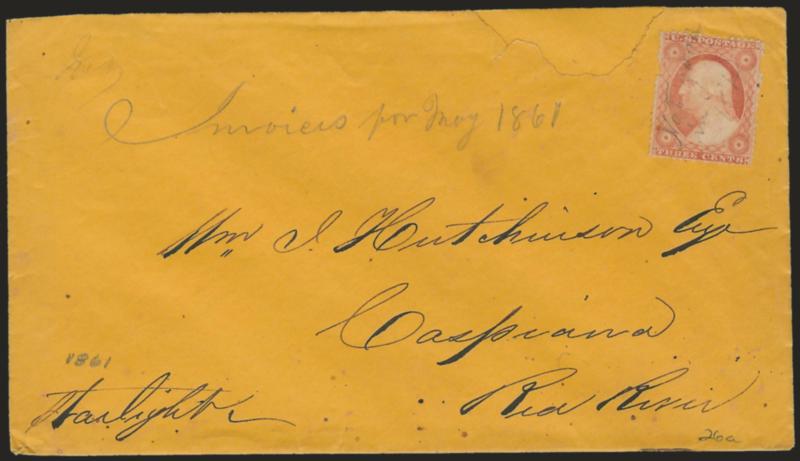 U.S. POSTAGE
THREE CENTS
Invoices for May 1861
Wm J. Hutchinson Esq
Caspiana
Red River
1861
Starlight
26a